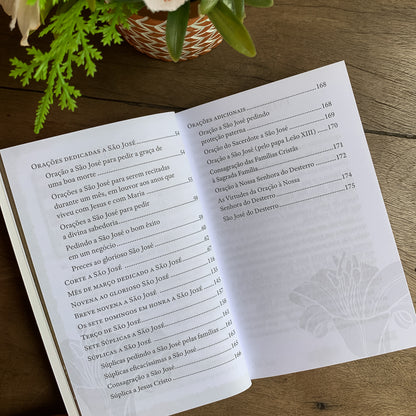 ORAÇÕES DEDICADAS A SÃO JOSÉ
Oração a São José para pedir a graça de
uma boa morte
Orações a São José para serem recitadas
durante um mês, em louvor aos anos que
viveu com Jesus e com Maria
Orações a São José para pedir
a divina sabedoria
Pedindo a São José o bom êxito
em um negócio
Preces ao glorioso São José
CORTE A SÃO JOSÉ
MÊS DE MARÇO DEDICADO A SÃO JOSÉ
NOVENA AO GLORIOSO SÃO JOSÉ
BREVE NOVENA A SÃO JOSÉ
OS SETE DOMINGOS EM HONRA A SÃO JOSÉ
TERÇO DE SÃO JOSÉ
SETE SÚPLICAS A SÃO JOSÉ
SÚPLICAS A SÃO JOSÉ
Súplicas pedindo a São José pelas famílias
Súplicas eficacíssimas a São José
Consagração a São José
Súplica a Jesus Cristo 166
ORAÇÕES ADICIONAIS 168
Oração a São José pedindo
proteção paterna 168
Oração do Sacerdote a São José 169
Oração a São José (pelo papa Leão XIII) 170
Consagração das Famílias Cristãs
à Sagrada Família 171
Oração a Nossa Senhora do Desterro 172
As Virtudes da Oração a Nossa
Senhora do Desterro 174
São José do Desterro 175